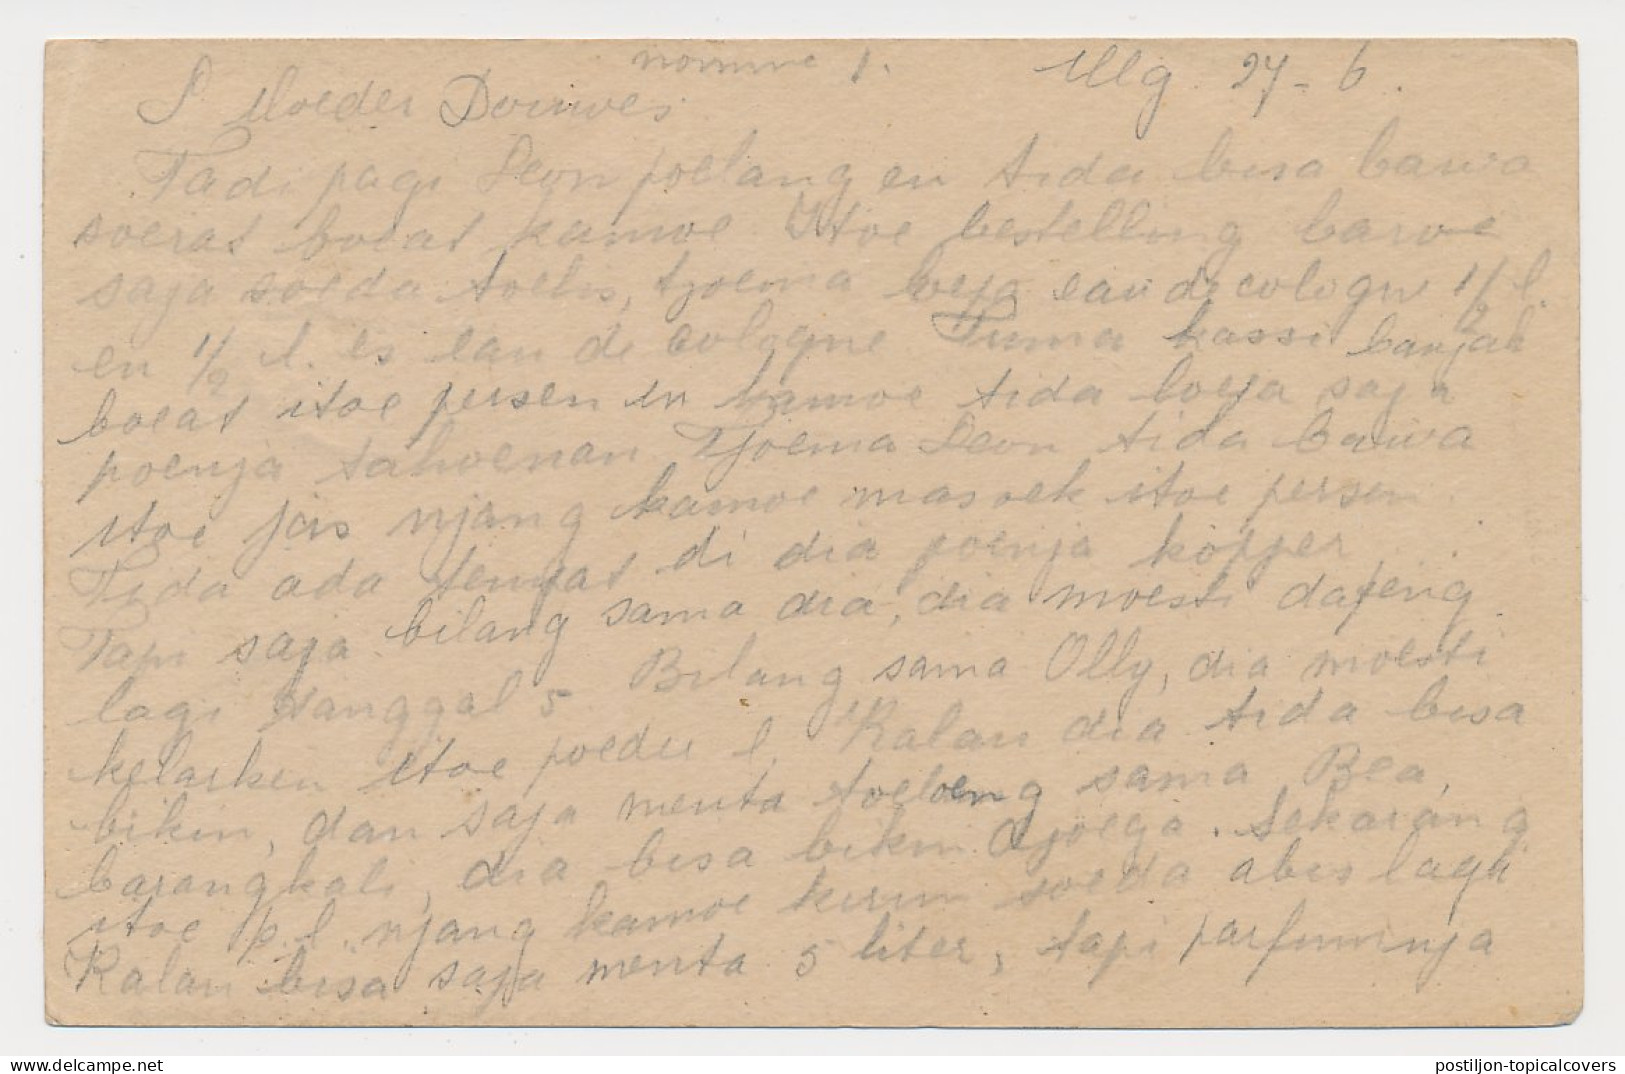 nomme 1.
Mlg. 27-6.
P. Moeder Douwes
Tadi pagi Leon poelang en tida bisa bawa
soerat boeat kamoe. Itoe bestelling baroe
saja soeda toelis, tjoema loeja eau de cologne 1/2 l.
en 1/2 l. es eau de cologne Tuma kassi banjak
boeat itoe persen en kamoe tida loeja saja
poenja tahoenan. Tjoema Leon tida bawa
itoe jas njang kamoe masoek itoe persen.
Tida ada tempat di dia poenja koffer.
Tapi saja bilang sama dia, dia moesti dateng
lagi tanggal 5. Bilang sama Olly, dia moesti
kelarken itoe poeder l. Kalau dia tida bisa
bikin, dan saja menta toeloeng sama Bea,
barangkali, dia bisa bikin djoega. Sekarang
itoe p.l. njang kamoe kirim soeda abis lagi
Kalau bisa saja menta 5 liter, tapi parfumnja
postiljon-topicalcovers